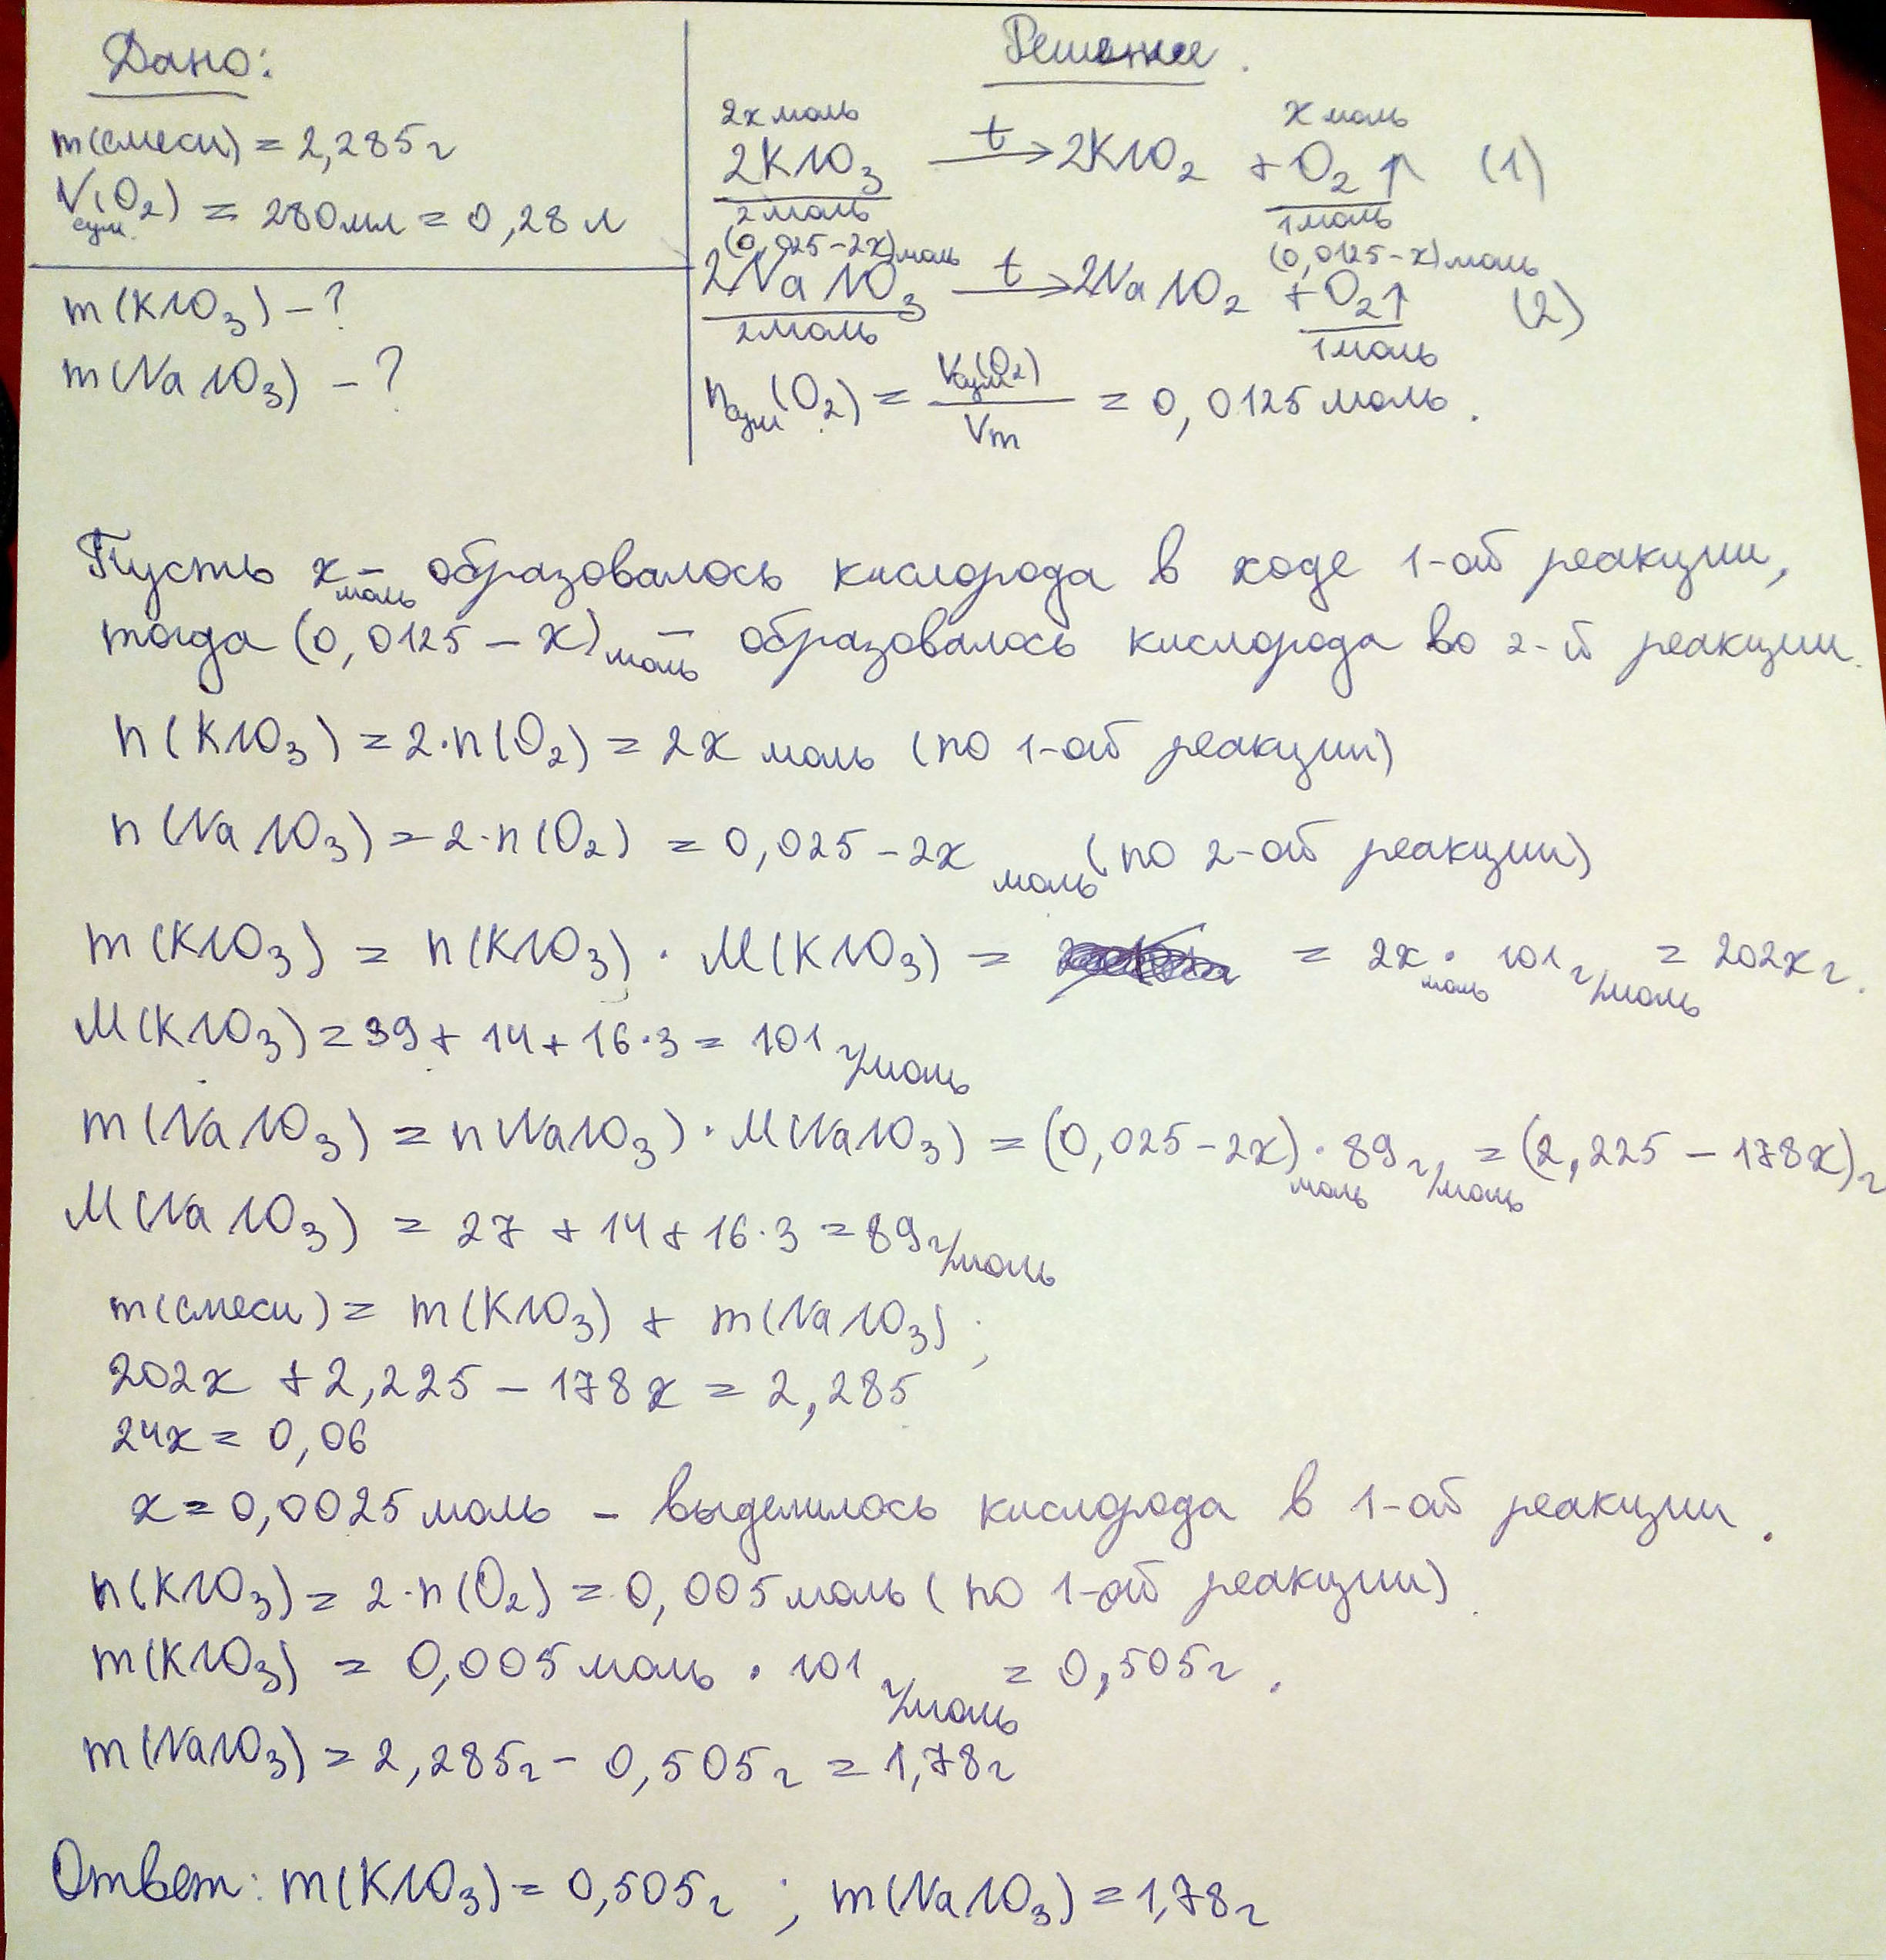 Дано:
m(смеси) = 2,285г
Vсум.(O₂) = 280мл = 0,28 л
m(KNO₃) – ?
m(NaNO₃) – ?
Решение.
2x моль x моль
2KNO₃ —t→ 2KNO₂ + O₂↑ (1)
2моль 1моль
(0,025-2x)моль (0,0125-x)моль
2NaNO₃ —t→ 2NaNO₂ + O₂↑ (2)
2моль 1моль
nсум(O₂) = Vсум(O₂)/Vm = 0,0125 моль.
Пусть x моль – образовалось кислорода в ходе 1-ой реакции,
тогда (0,0125 – x) моль – образовалось кислорода во 2-й реакции.
n(KNO₃) = 2·n(O₂) = 2x моль (по 1-ой реакции)
n(NaNO₃) = 2·n(O₂) = 0,025 – 2x моль (по 2-ой реакции)
m(KNO₃) = n(KNO₃) · M(KNO₃) = = 2x моль · 101 г/моль = 202x г.
M(KNO₃) = 39 + 14 + 16·3 = 101 г/моль
m(NaNO₃) = n(NaNO₃) · M(NaNO₃) = (0,025 – 2x) моль · 89 г/моль = (2,225 – 178x) г
M(NaNO₃) = 27 + 14 + 16·3 = 89 г/моль
m(смеси) = m(KNO₃) + m(NaNO₃) ;
202x + 2,225 – 178x = 2,285
24x = 0,06
x = 0,0025 моль – выделилось кислорода в 1-ой реакции.
n(KNO₃) = 2·n(O₂) = 0,005 моль (по 1-ой реакции).
m(KNO₃) = 0,005 моль · 101 г/моль = 0,505г.
m(NaNO₃) = 2,285г – 0,505г = 1,78г
Ответ: m(KNO₃) = 0,505г ; m(NaNO₃) = 1,78г